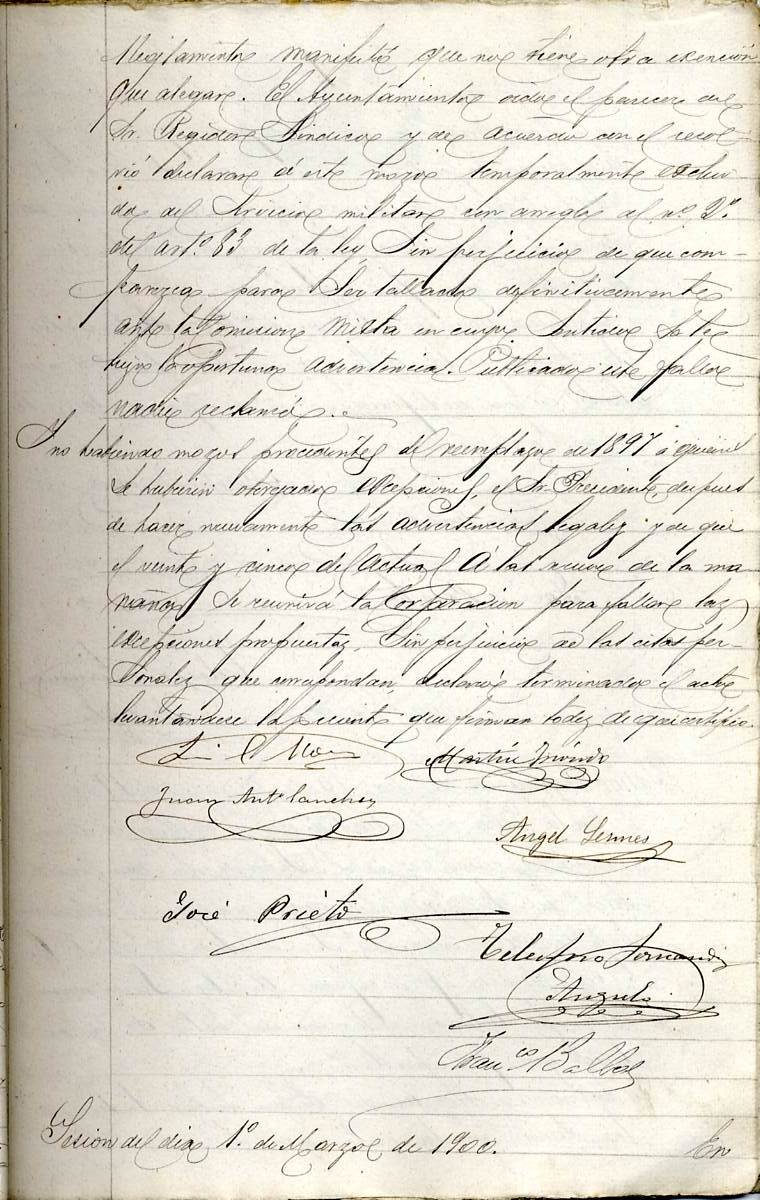 manifestó que no tiene otra exención
que alegar. El Ayuntamiento oído el parecer del
Sr. Regidor Síndico y de acuerdo con el resol-
vió declarar á este mozo temporalmente exclui-
do del servicio militar con arreglo al nº 2º
del artº 83 de la ley sin perjuicio de que com-
parezca para ser tallado definitivamente
ante la Comision Mixta en cuyo sentido se le
hizo la oportuna advertencia. Publicado este fallo
nadie reclamó.
Y no habiendo mozos procedentes del reemplazo de 1897 á quienes
se hubieran otorgado excepciones, el Sr. Presidente, despues
de hacer nuevamente las advertencias legales y de que
el veinte y cinco del actual á las nueve de la ma-
ñana se reunirá la Corporacion para fallar las
excepciones propuestas, sin perjuicio de las citas per-
sonales que correspondan, declaró terminado el acto
levantandose la presente que firman todos de que certifico.
Martín
Juan Antº Sanchez
Angel
José Prieto
Telesforo Fernandez
Angulo
Franco Balboa
Sesion del dia 1º de Marzo de 1900. En